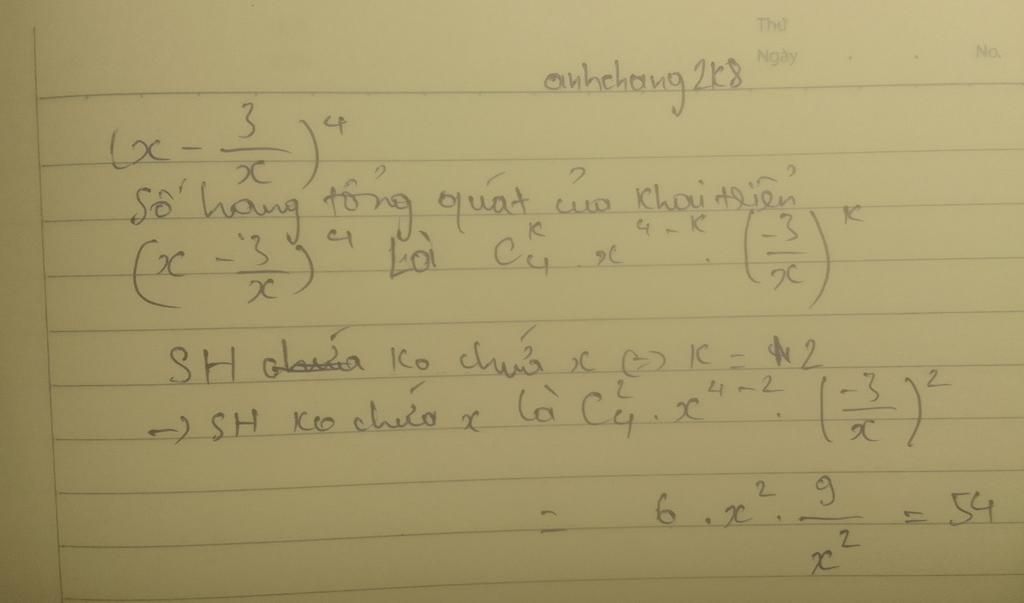 Thứ
Ngày . . No.
anhchang2k8
(x - 3/x)^4
Số hạng tổng quát của khai triển
(x - 3/x)^4 Là C_4^k . x^{4-k} . (-3/x)^k
SH ko chứa x (=) K = 2
-) SH ko chứa x là C_4^2 . x^{4-2} . (-3/x)^2
= 6 . x^2 . 9/x^2 = 54